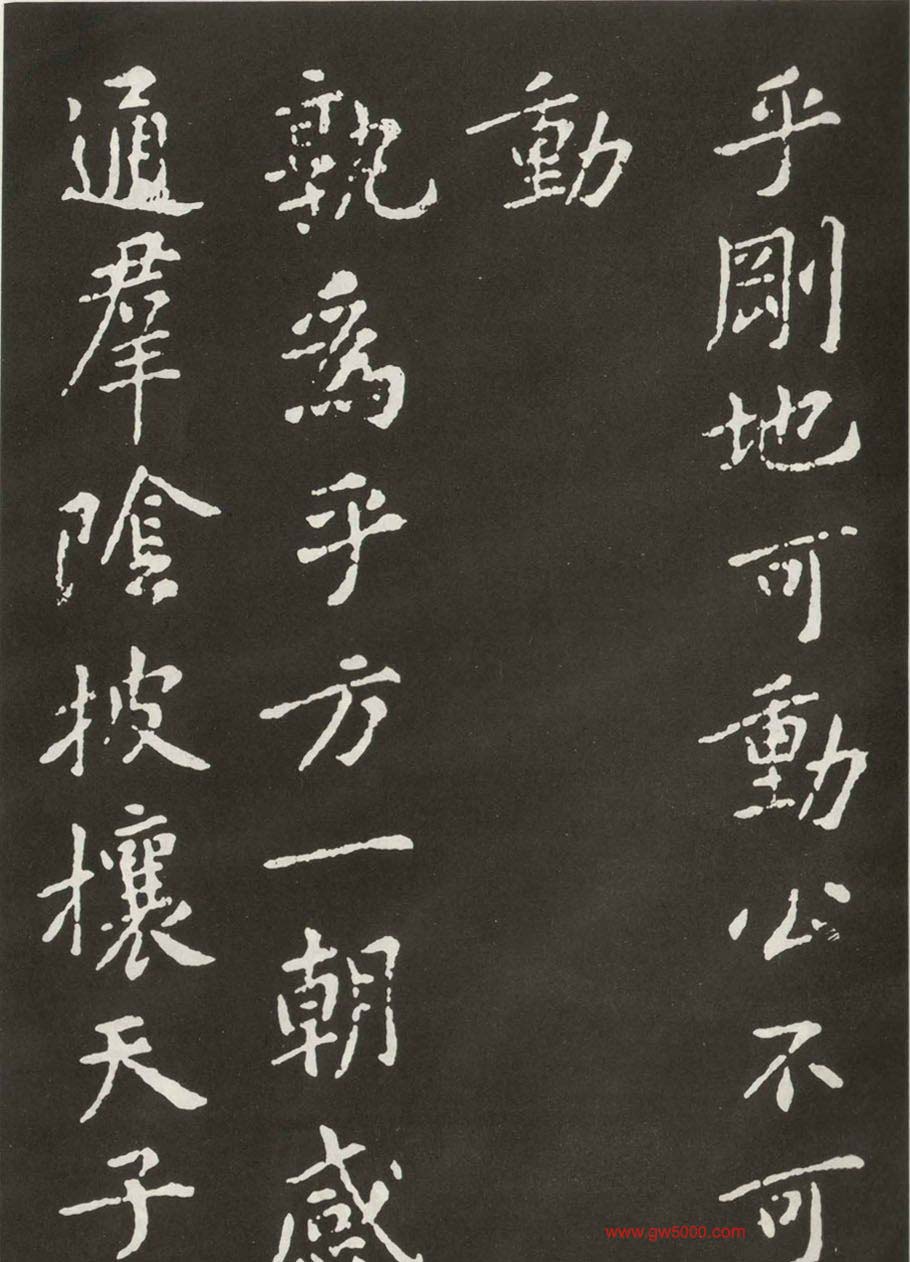 乎剛地可動公不可
動
孰爲乎方一朝感
通羣陰披攘天子
www.gw5000.com